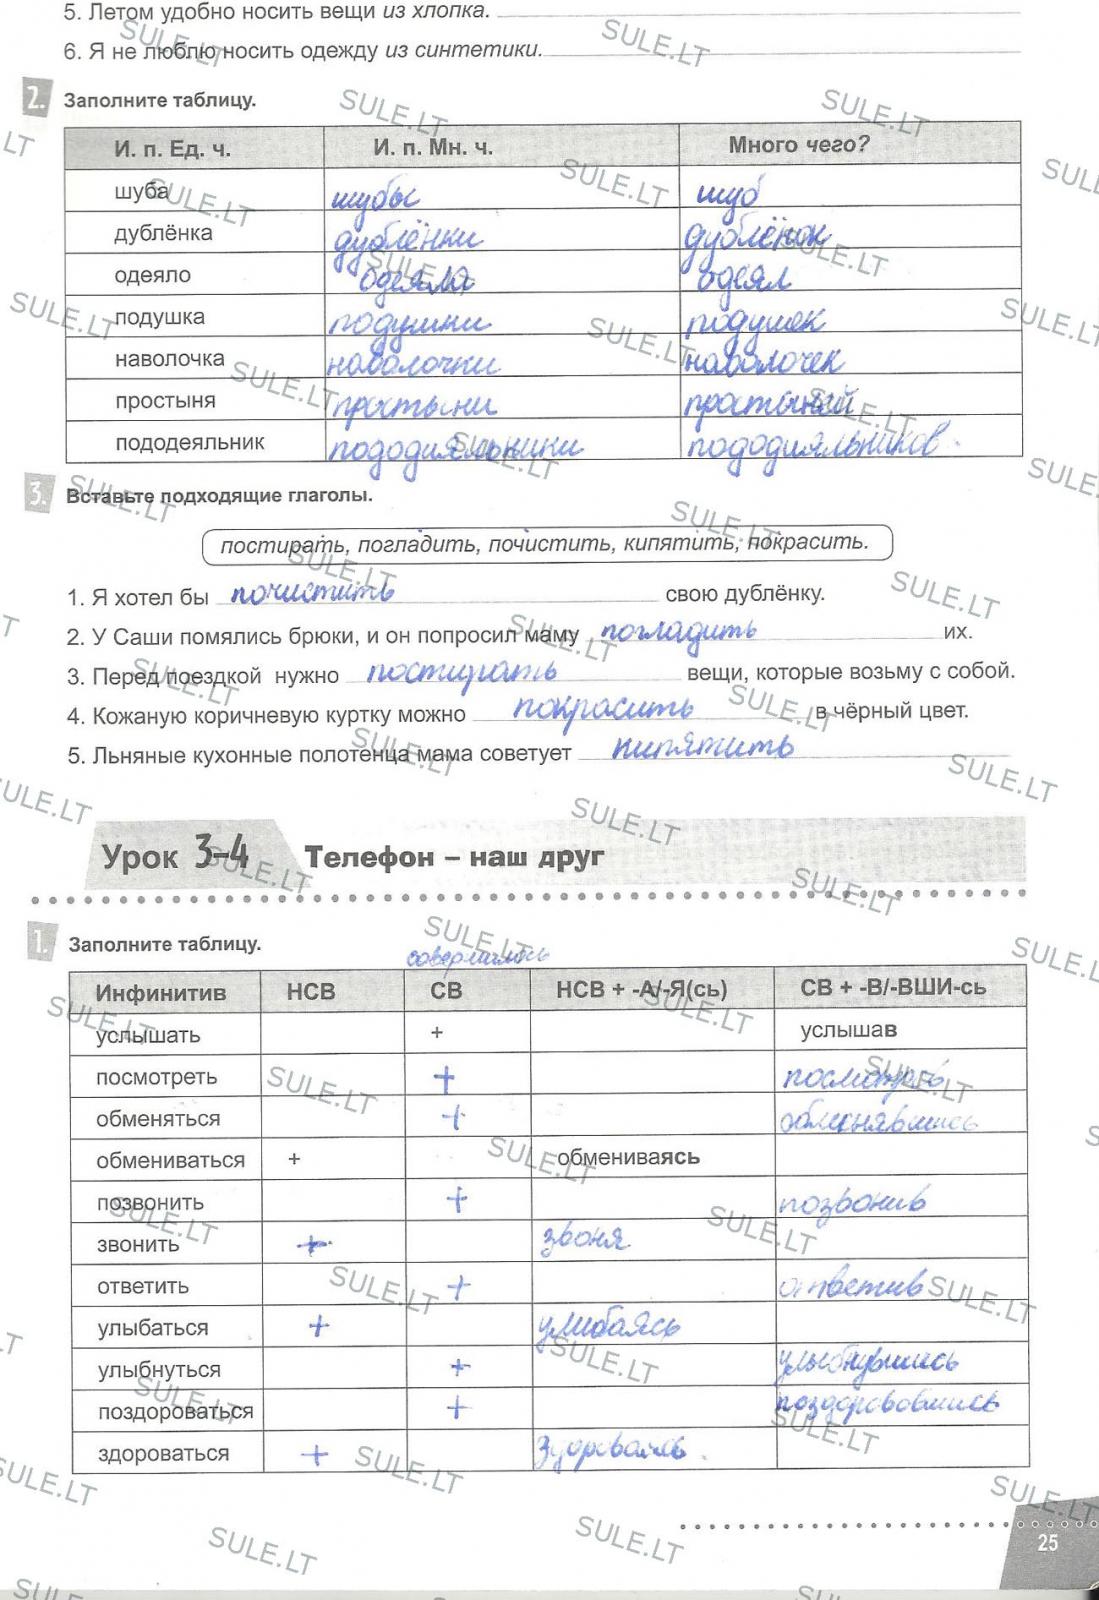 5. Летом удобно носить вещи из хлопка.
6. Я не люблю носить одежду из синтетики.
2. Заполните таблицу.
И. п. Ед. ч. И. п. Мн. ч. Много чего?
шуба шубы шуб
дублёнка дублёнки дублёнок
одеяло одеяла одеял
подушка подушки подушек
наволочка наволочки наволочек
простыня простыни простыний
пододеяльник пододияльники пододияльников
3. Вставьте подходящие глаголы.
постирать, погладить, почистить, кипятить, покрасить.
1. Я хотел бы почистить свою дублёнку.
2. У Саши помялись брюки, и он попросил маму погладить их.
3. Перед поездкой нужно постирать вещи, которые возьму с собой.
4. Кожаную коричневую куртку можно покрасить в чёрный цвет.
5. Льняные кухонные полотенца мама советует кипятить
Урок 3–4 Телефон – наш друг
1. Заполните таблицу.
Инфинитив НСВ СВ НСВ + -А/-Я(сь) СВ + -В/-ВШИ-сь
услышать + услышав
посмотреть +
обменяться + обменявшись
обмениваться + обмениваясь
позвонить + позвонив
звонить + звоня
ответить + ответив
улыбаться + улибаясь
улыбнуться + улыбнувшись
поздороваться + поздоровавшись
здороваться + Здороваясь
25
SULE.LT